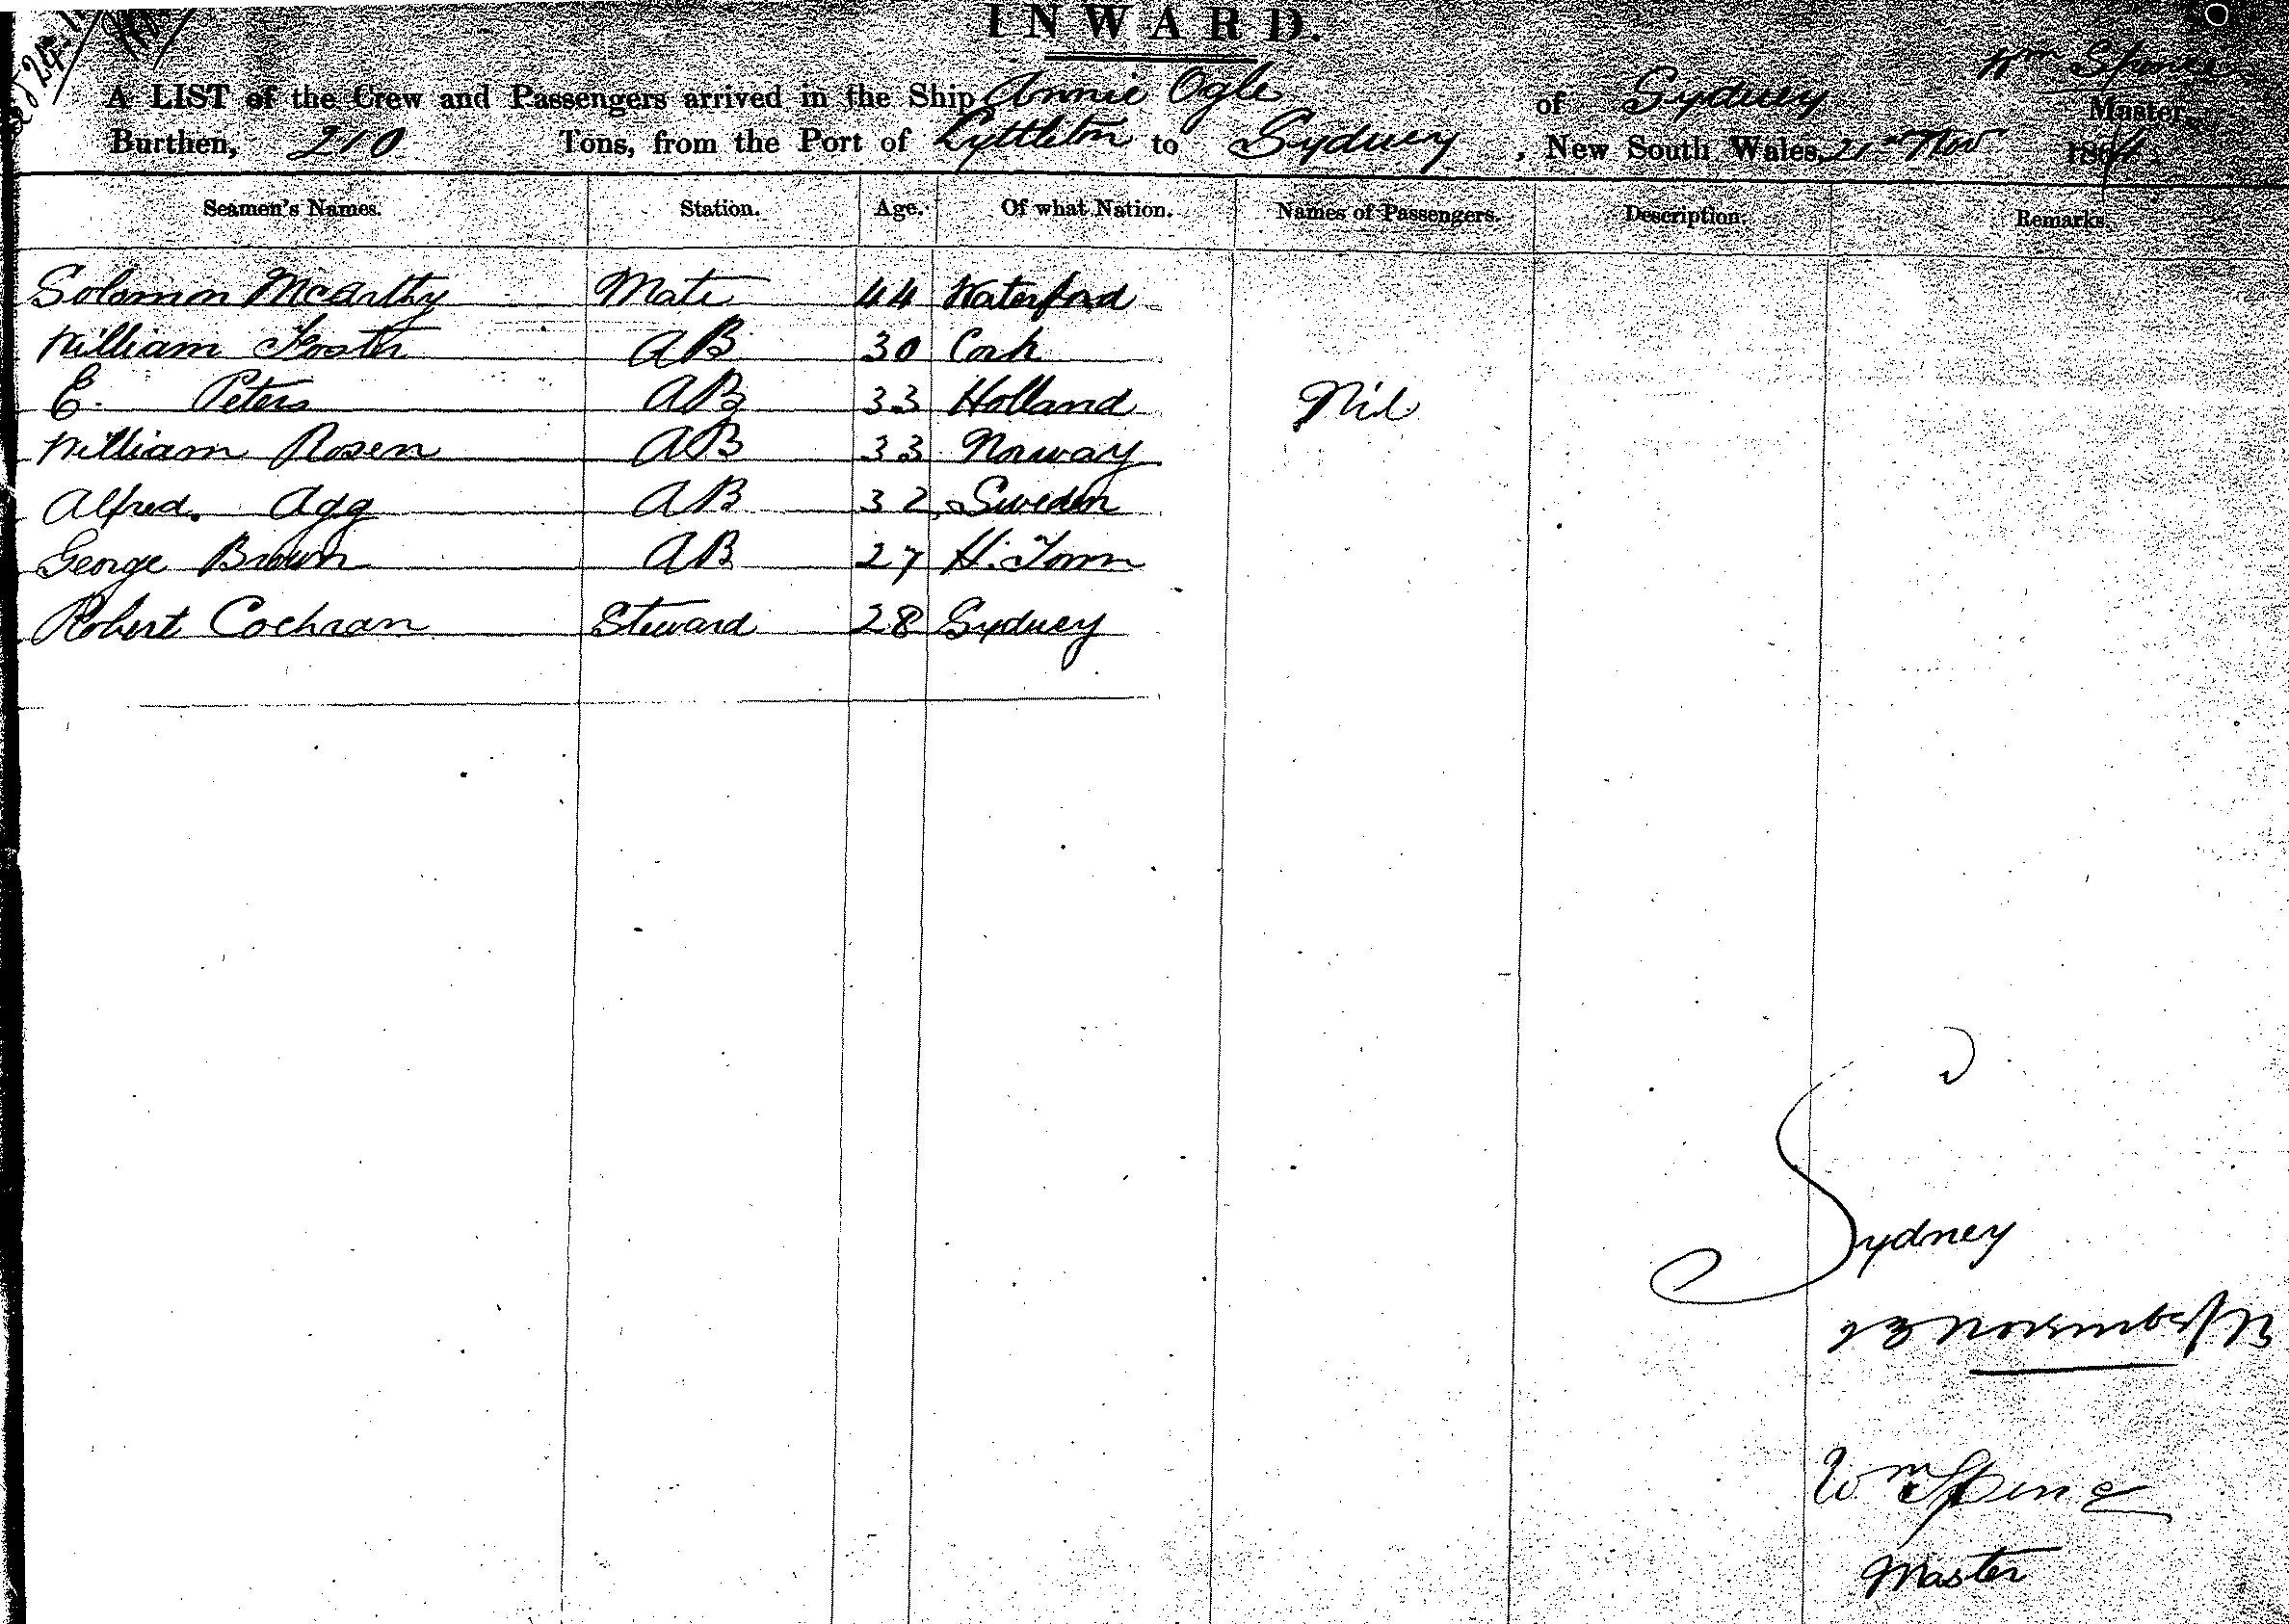 INWARD.
Wm Spence
A LIST of the Crew and Passengers arrived in the Ship Annie Ogle of Sydney Master,
Burthen, 210 Tons, from the Port of Lyttleton to Sydney, New South Wales, 21st Nov
Seamen's Names. Station. Age. Of what Nation. Names of Passengers. Description. Remarks.
Solomon McArthy Mate 44 Waterford
William Foster AB 30 Cork
E. Peters AB 33 Holland Nil
William Rosen AB 33 Norway
Alfred. Agg AB 32 Sweden
George Brown AB 27 H. Town
Robert Cochran Steward 28 Sydney
Sydney
23 November
Wm Spence
Master